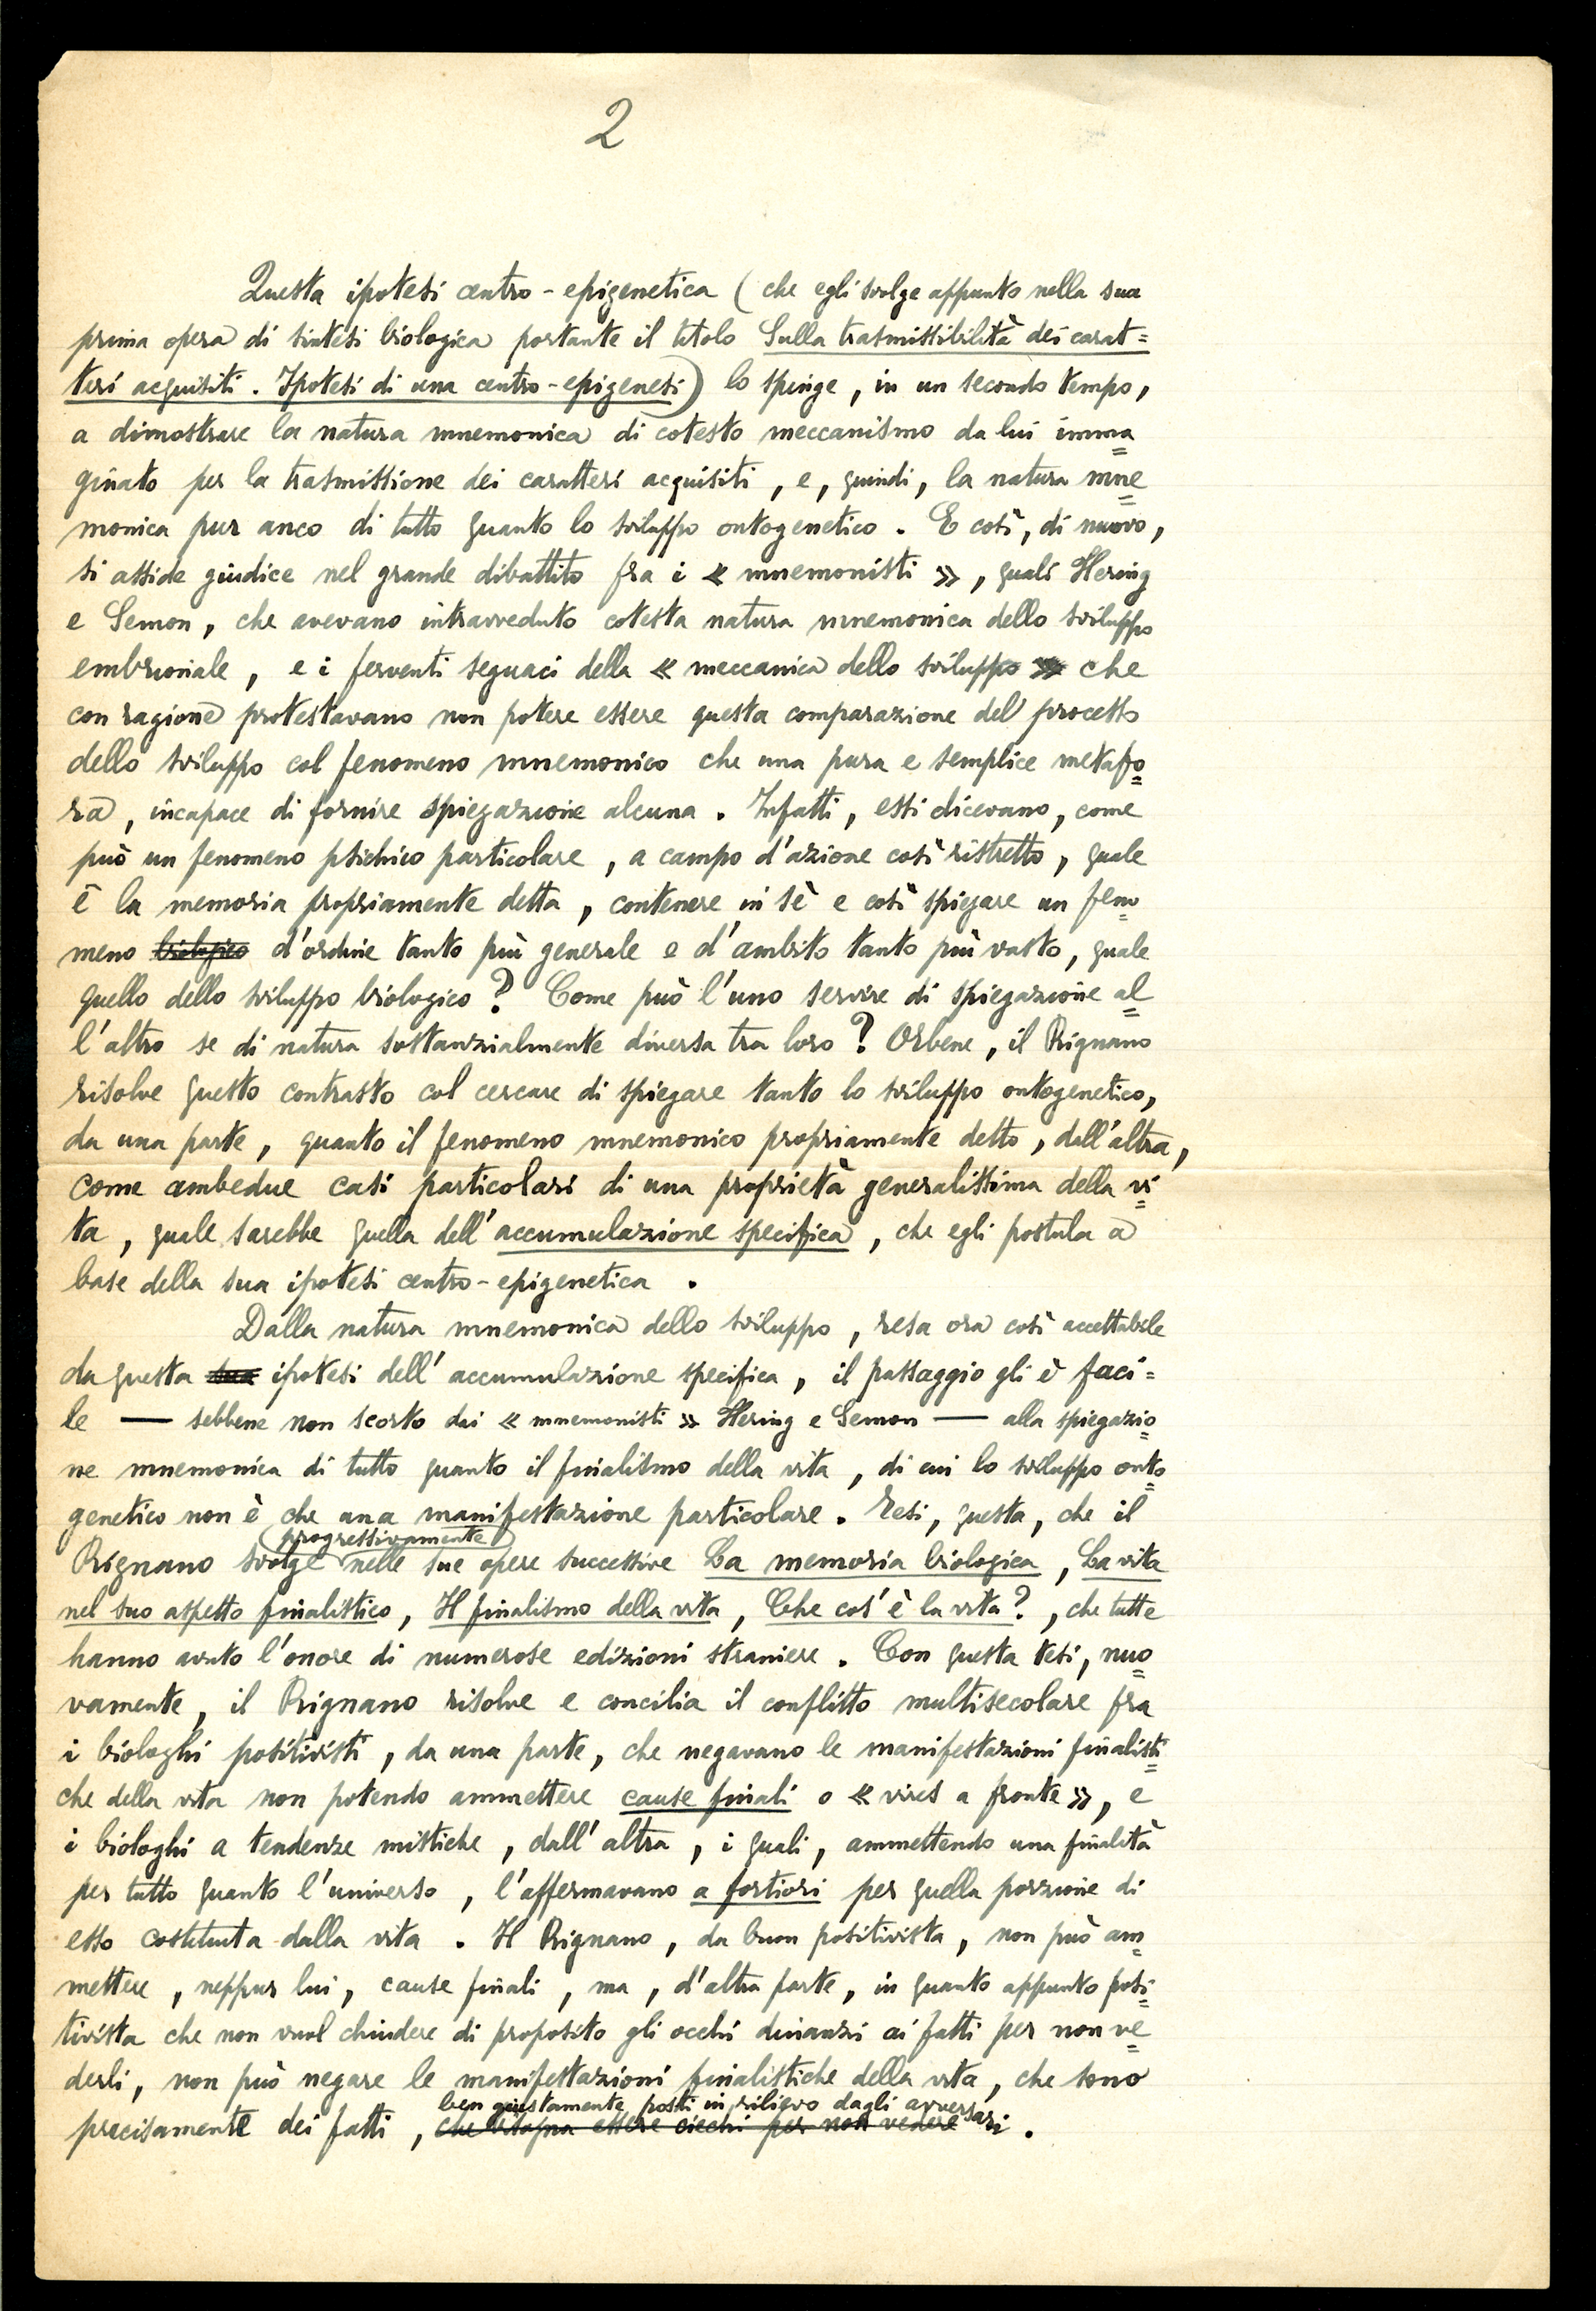 2
Questa ipotesi centro-epigenetica (che egli svolge appunto nella sua
prima opera di sintesi biologica portante il titolo Sulla trasmissibilità dei carat=
teri acquisiti. Ipotesi di una centro-epigenesi) lo spinge, in un secondo tempo,
a dimostrare la natura mnemonica di cotesto meccanismo da lui imma=
ginato per la trasmissione dei caratteri acquisiti, e, quindi, la natura mne=
monica pur anco di tutto quanto lo sviluppo ontogenetico. E così, di nuovo,
si asside giudice nel grande dibattito fra i « mnemonisti », quali Hering
e Semon, che avevano intravveduto cotesta natura mnemonica dello sviluppo
embrionale, e i ferventi seguaci della « meccanica dello sviluppo » che
con ragione protestavano non potere essere questa comparazione del processo
dello sviluppo col fenomeno mnemonico che una pura e semplice metafo=
ra, incapace di fornire spiegazione alcuna. Infatti, essi dicevano, come
può un fenomeno psichico particolare, a campo d'azione così ristretto, quale
è la memoria propriamente detta, contenere in sè e così spiegare un feno=
meno biologico d'ordine tanto più generale e d'ambito tanto più vasto, quale
quello dello sviluppo biologico? Come può l'uno servire di spiegazione al=
l'altro se di natura sostanzialmente diversa tra loro? Orbene, il Rignano
risolve questo contrasto col cercare di spiegare tanto lo sviluppo ontogenetico,
da una parte, quanto il fenomeno mnemonico propriamente detto, dall'altra,
come ambedue casi particolari di una proprietà generalissima della vi=
ta, quale sarebbe quella dell'accumulazione specifica, che egli postula a
base della sua ipotesi centro-epigenetica.
Dalla natura mnemonica dello sviluppo, resa ora così accettabile
da questa sua ipotesi dell'accumulazione specifica, il passaggio gli è faci=
le — sebbene non scorto dai « mnemonisti » Hering e Semon — alla spiegazio=
ne mnemonica di tutto quanto il finalismo della vita, di cui lo sviluppo onto=
genetico non è che una manifestazione particolare. Tesi, questa, che il
progressivamente
Rignano svolge nelle sue opere successive La memoria biologica, La vita
nel suo aspetto finalistico, Il finalismo della vita, Che cos'è la vita?, che tutte
hanno avuto l'onore di numerose edizioni straniere. Con questa tesi, nuo=
vamente, il Rignano risolve e concilia il conflitto multisecolare fra
i biologhi positivisti, da una parte, che negavano le manifestazioni finalisti=
che della vita non potendo ammettere cause finali o « vires a fronte », e
i biologhi a tendenze mistiche, dall'altra, i quali, ammettendo una finalità
per tutto quanto l'universo, l'affermavano a fortiori per quella porzione di
esso costituita dalla vita. Il Rignano, da buon positivista, non può am=
mettere, neppur lui, cause finali, ma, d'altra parte, in quanto appunto posi=
tivista che non vuol chiudere di proposito gli occhi dinanzi ai fatti per non ve=
derli, non può negare le manifestazioni finalistiche della vita, che sono
ben giustamente posti in rilievo dagli avversari.
precisamente dei fatti, che bisogna essere ciechi per non vedere